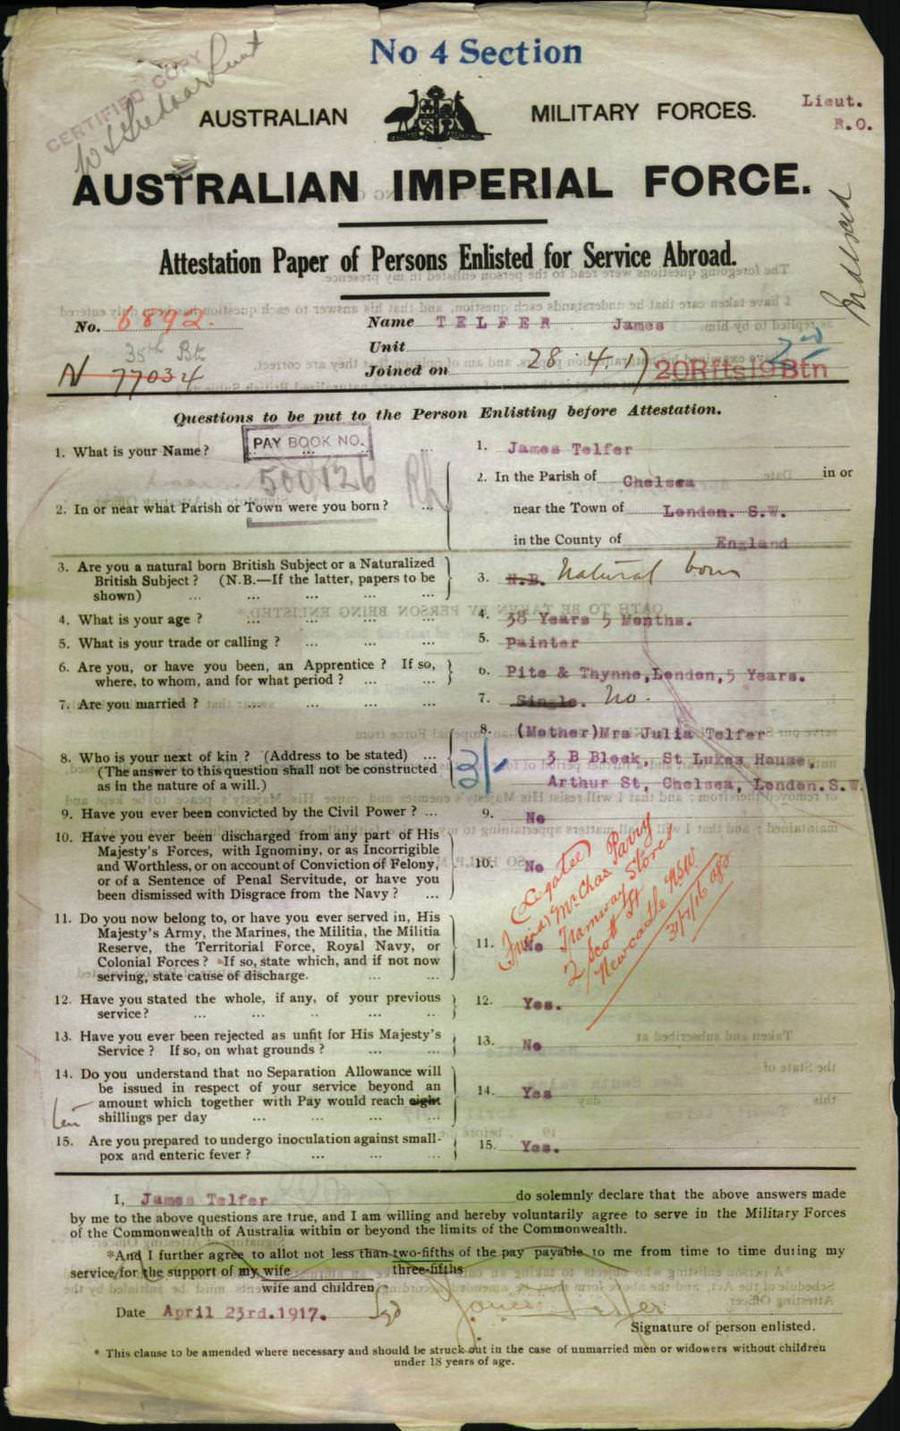 No 4 Section
CERTIFIED COPY
Lieut.
AUSTRALIAN MILITARY FORCES.
Lieut.
R.O.
AUSTRALIAN IMPERIAL FORCE.
Attestation Paper of Persons Enlisted for Service Abroad.
No. 6892. Name TELFER James
35th Bt Unit 2nd
N 77034 Joined on 28.4.17 20Rfts19Btn
Questions to be put to the Person Enlisting before Attestation.
PAY BOOK NO.
500126
1. What is your Name? ... ... 1. James Telfer
2. In or near what Parish or Town were you born? ... 2. In the Parish of Chelsea in or
near the Town of London. S.W.
in the County of England
3. Are you a natural born British Subject or a Naturalized
British Subject? (N.B.—If the latter, papers to be
shown) ... ... ... ... 3. N.B. Natural born
4. What is your age? ... ... ... 4. 38 Years 5 Months.
5. What is your trade or calling? ... ... ... 5. Painter
6. Are you, or have you been, an Apprentice? If so,
where, to whom, and for what period? ... ... 6. Pite & Thynne, London, 5 Years.
7. Are you married? ... ... ... ... 7. Single. No.
8. Who is your next of kin? (Address to be stated) ...
(The answer to this question shall not be constructed
as in the nature of a will.)
3/- 8. (Mother) Mrs Julia Telfer
3 B Block, St Lukes House,
Arthur St, Chelsea, London. S.W.
9. Have you ever been convicted by the Civil Power? ... 9. No
10. Have you ever been discharged from any part of His
Majesty's Forces, with Ignominy, or as Incorrigible
and Worthless, or on account of Conviction of Felony,
or of a Sentence of Penal Servitude, or have you
been dismissed with Disgrace from the Navy? ... 10. No
(Legatee)
(Friend) Mr Chas Parry
Tramway Stores
2 Scott St
Newcastle NSW
11. Do you now belong to, or have you ever served in, His
Majesty's Army, the Marines, the Militia, the Militia
Reserve, the Territorial Force, Royal Navy, or
Colonial Forces? If so, state which, and if not now
serving, state cause of discharge. ... ... 11. No
12. Have you stated the whole, if any, of your previous
service? ... ... ... ... ... 12. Yes.
13. Have you ever been rejected as unfit for His Majesty's
Service? If so, on what grounds? ... ... 13. No
14. Do you understand that no Separation Allowance will
be issued in respect of your service beyond an
amount which together with Pay would reach eight
ten shillings per day ... ... ... ... 14. Yes
15. Are you prepared to undergo inoculation against small-
pox and enteric fever? ... ... ... 15. Yes.
I, James Telfer do solemnly declare that the above answers made
by me to the above questions are true, and I am willing and hereby voluntarily agree to serve in the Military Forces
of the Commonwealth of Australia within or beyond the limits of the Commonwealth.
*And I further agree to allot not less than two-fifths of the pay payable to me from time to time during my
service for the support of my wife three-fifths
wife and children
Date April 23rd.1917. Sgd James Telfer
Signature of person enlisted.
* This clause to be amended where necessary and should be struck out in the case of unmarried men or widowers without children
under 18 years of age.